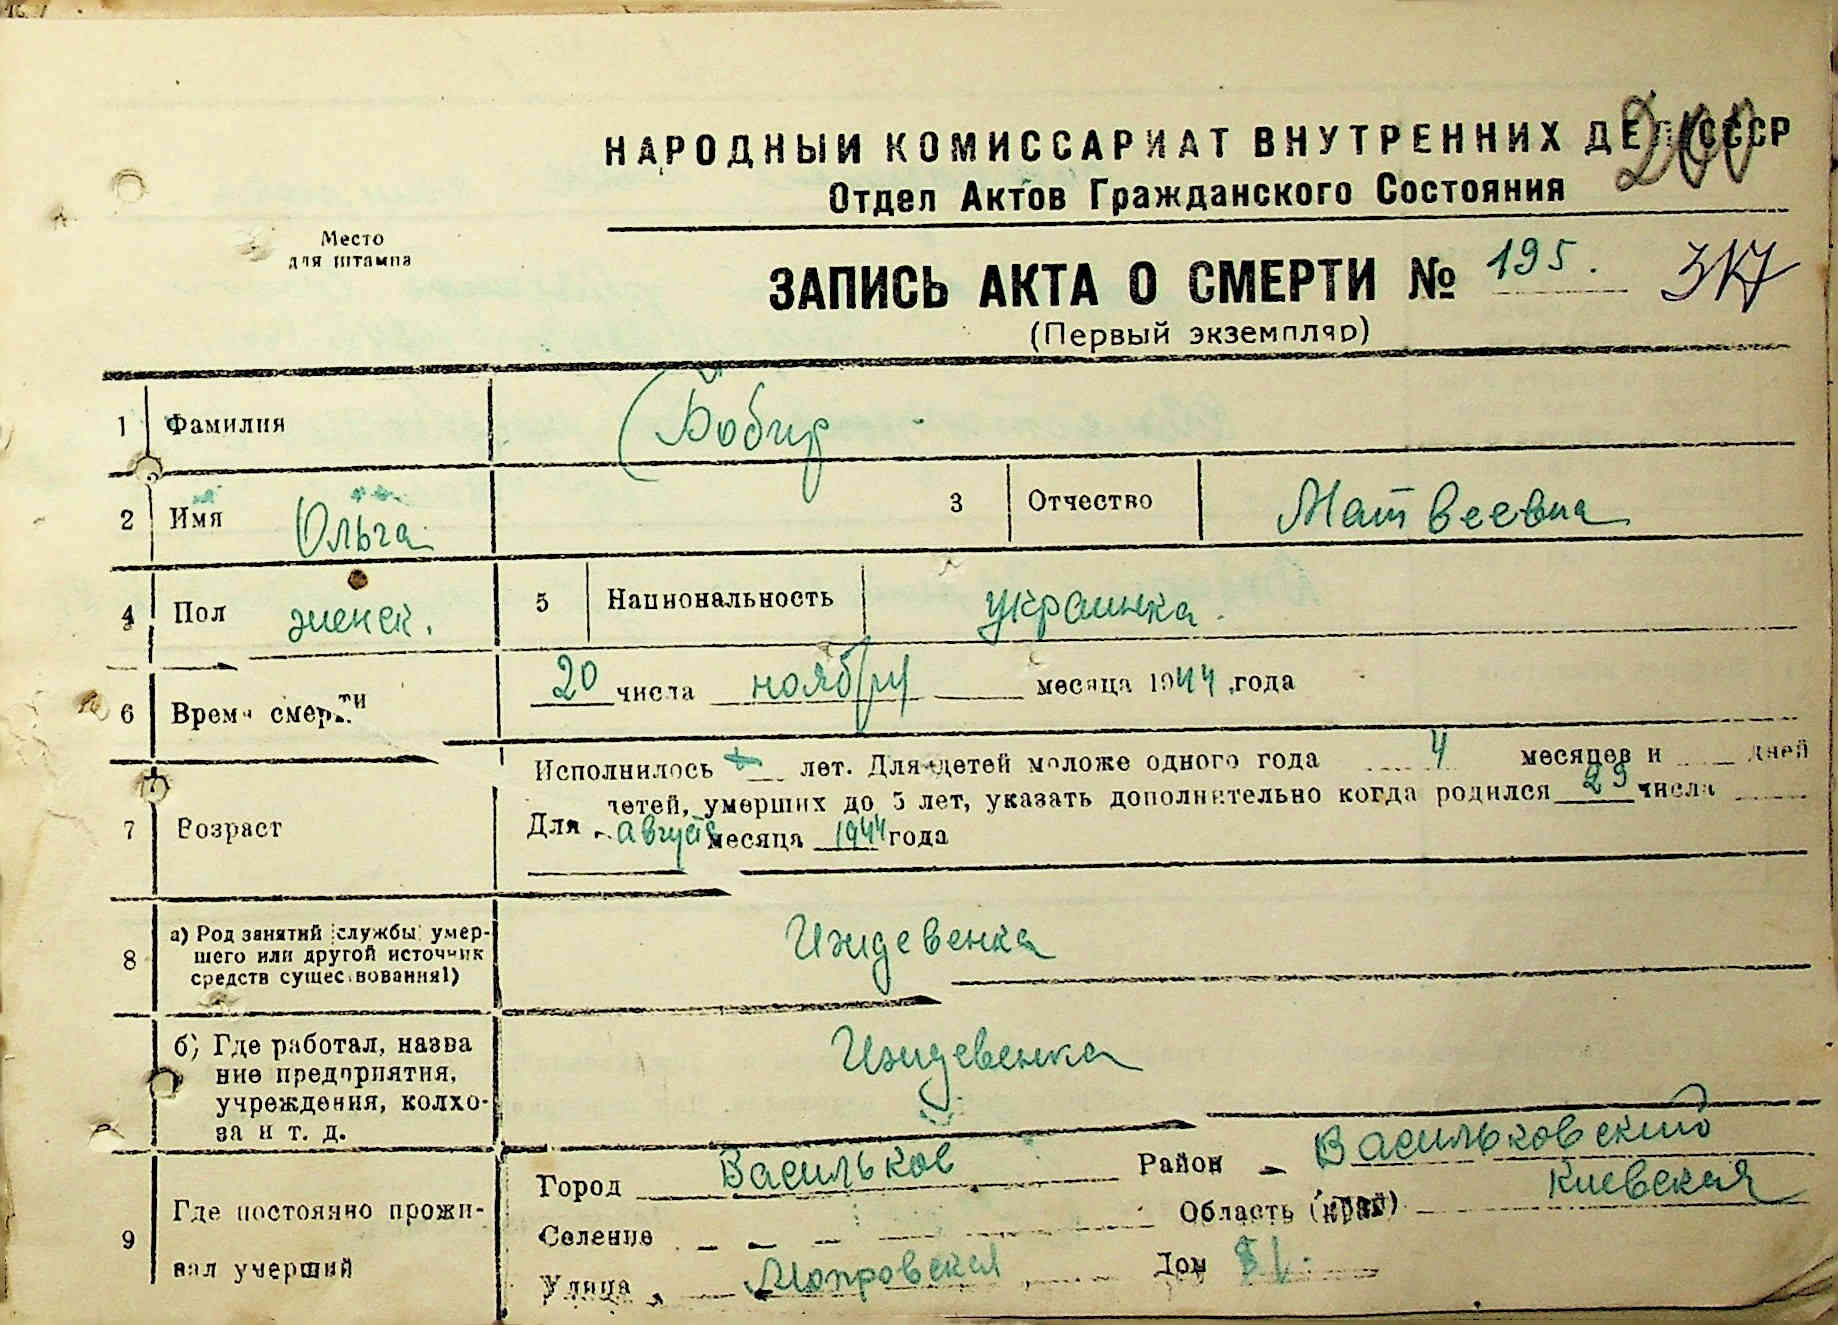 НАРОДНЫЙ КОМИССАРИАТ ВНУТРЕННИХ ДЕЛ СССР
200
Отдел Актов Гражданского Состояния
Место
для штампа
ЗАПИСЬ АКТА О СМЕРТИ № 195.
(Первый экземпляр)
1 Фамилия Бобир
2 Имя Ольга 3 Отчество Матвеевна
4 Пол женск. 5 Национальность украинка.
6 Время смерти 20 числа ноября месяца 1944 года
7 Возраст
Исполнилось лет. Для детей моложе одного года 4 месяцев и дней
Для детей, умерших до 5 лет, указать дополнительно когда родился 29 числа
август месяца 1944 года
8 а) Род занятий (службы) умер-
шего или другой источник
средств существования1)
Иждевенка
б) Где работал, назва
ние предприятия,
учреждения, колхо-
за и т. д.
Иждевенка
9 Где постоянно прожи-
вал умерший
Город Васильков Район Васильковский
Селение Область (край) Киевская
Улица Мопровская Дом